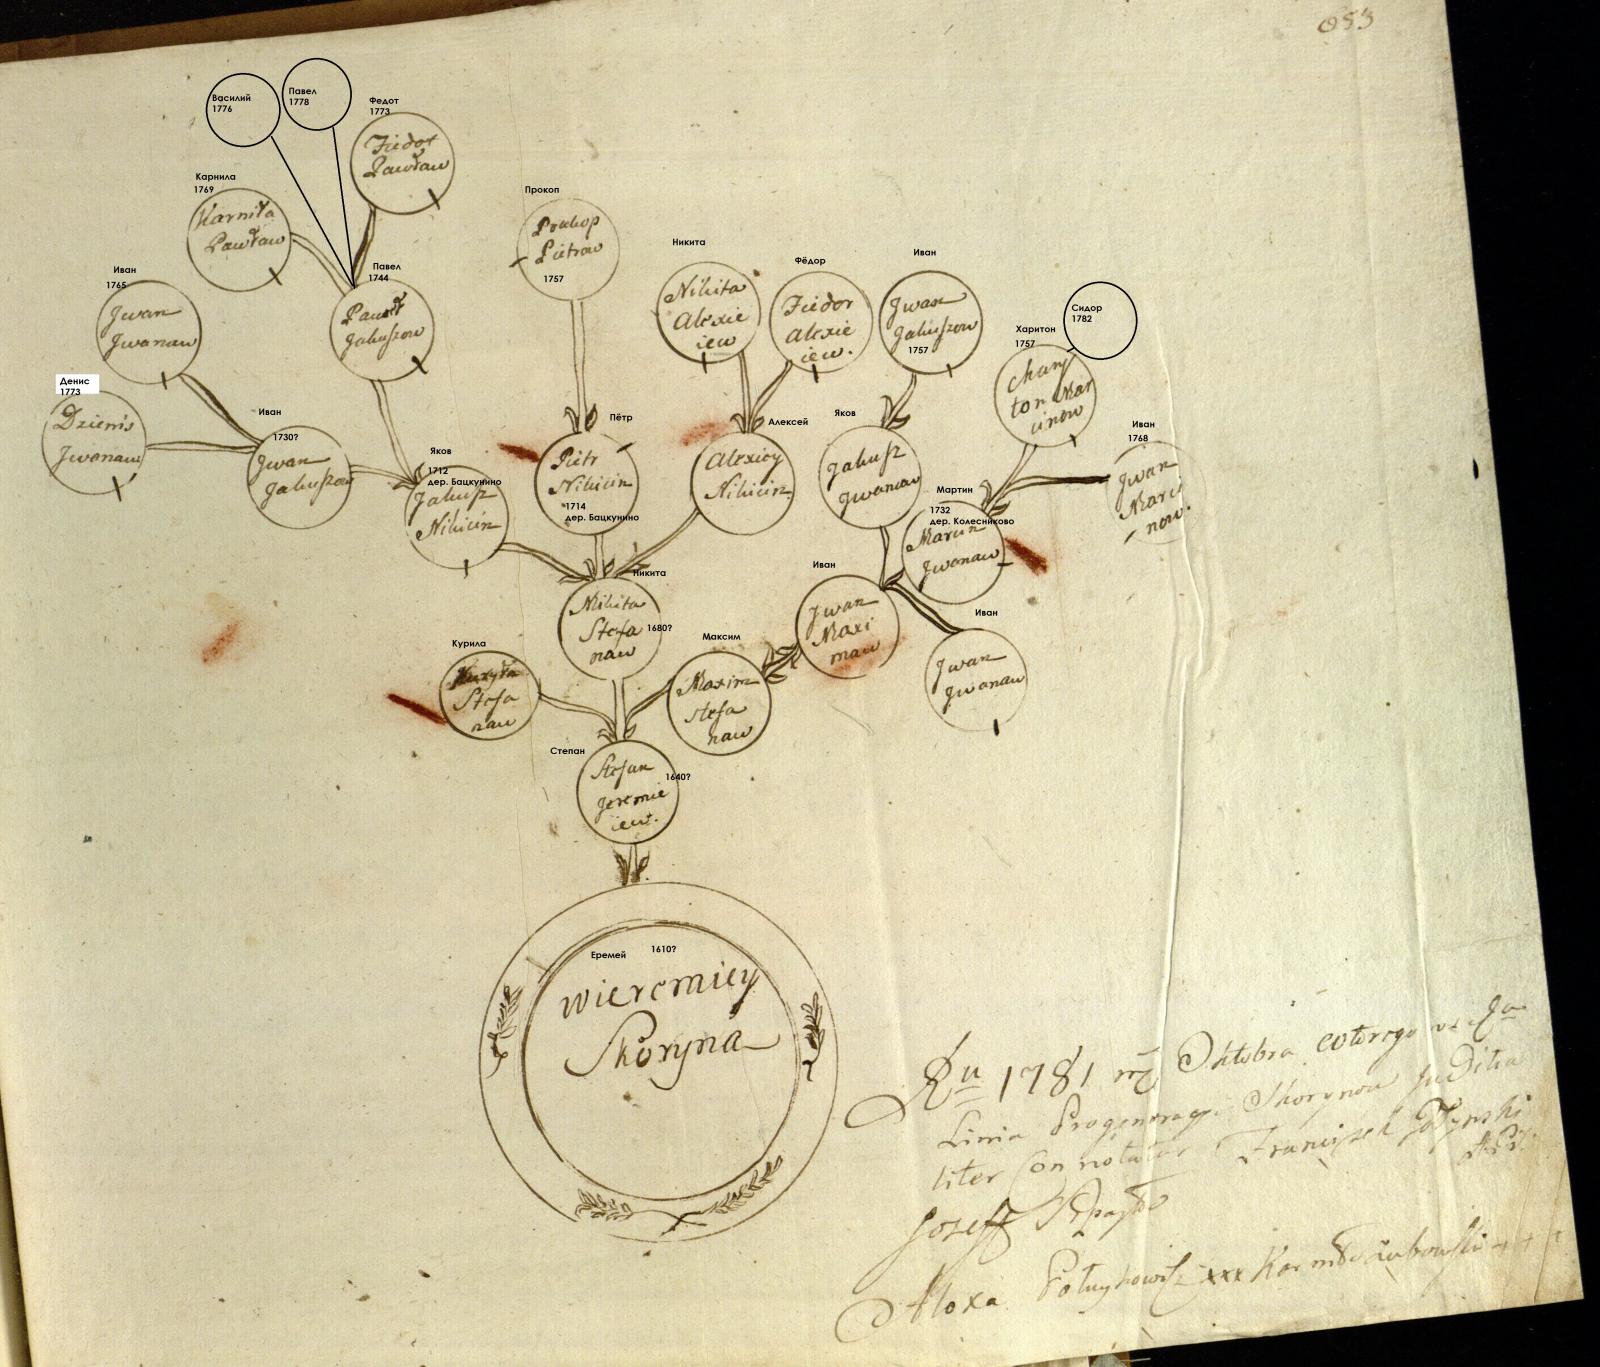 053
Василий
1776
Павел
1778
Федот
1773
Fiedor
Pawław
Карнила
1769
Karniła
Pawław
Прокоп
Prakop
Pietraw
1757
Иван
1765
Jwan
Jwanaw
Павел
1744
Paweł
Jakuszow
Никита
Nikita
Alexie
iew
Фёдор
Fiedor
Alexie
iew.
Иван
Jwan
Jakuszow
1757
Сидор
1782
Харитон
1757
Chary
ton Mar
cinow
Денис
1773
Dzienis
Jwanaw
Иван
1730?
Jwan
Jakuszow
Яков
1712
дер. Бацкунино
Jakusz
Nikicin
Пётр
Pietr
Nikicin
1714
дер. Бацкунино
Алексей
Alexiey
Nikicin
Яков
Jakusz
Jwanaw
Мартин
1732
дер. Колесниково
Marcin
Jwanaw
Иван
1768
Jwan
Marci
now.
Никита
Nikita
Stefa
naw
1680?
Иван
Jwan
Maxi
maw
Иван
Jwan
Jwanaw
Курила
Kuryła
Stefa
naw
Максим
Maxim
Stefa
naw
Степан
1640?
Stefan
Jeremie
iew.
Еремей
1610?
Wieremiey
Skoryna
Ru 1781 Oktobra
Linia Skorynow Juditia
liter Connotatur Franciszek
Jozeff
Aloxa xxx + + +